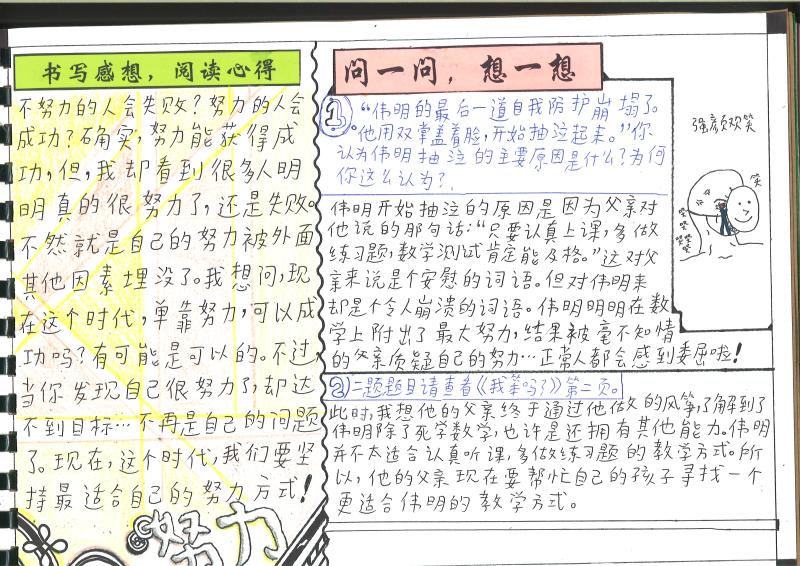 书写感想，阅读心得
不努力的人会失败？努力的人会
成功？确实，努力能获得成
功，但，我却看到很多人明
明真的很努力了，还是失败。
不然就是自己的努力被外面
其他因素埋没了。我想问，现
在这个时代，单靠努力，可以成
功吗？有可能是可以的。不过，
当你发现自己很努力了，却达
不到目标…不再是自己的问题
了。现在，这个时代，我们要坚
持最适合自己的努力方式！
努力
问一问，想一想
① “伟明的最后一道自我防护崩塌了。
他用双掌盖着脸，开始抽泣起来。”你
认为伟明抽泣的主要原因是什么？为何
你这么认为？
伟明开始抽泣的原因是因为父亲对
他说的那句话：“只要认真上课，多做
练习题，数学测试肯定能及格。”这对父
亲来说是个安慰的词语。但对伟明来
却是个令人崩溃的词语。伟明明明在数
学上附出了最大努力，结果被毫不知情
的父亲质疑自己的努力…正常人都会感到委屈啦！
② 二题题目请查看《我笨吗？》第二页。
此时，我想他的父亲终于通过他做的风筝，了解到了
伟明除了死学数学，也许是还拥有其他能力。伟明
并不太适合认真听课，多做练习题的教学方式。所
以，他的父亲现在要帮忙自己的孩子寻找一个
更适合伟明的教学方式。
强颜欢笑
笑